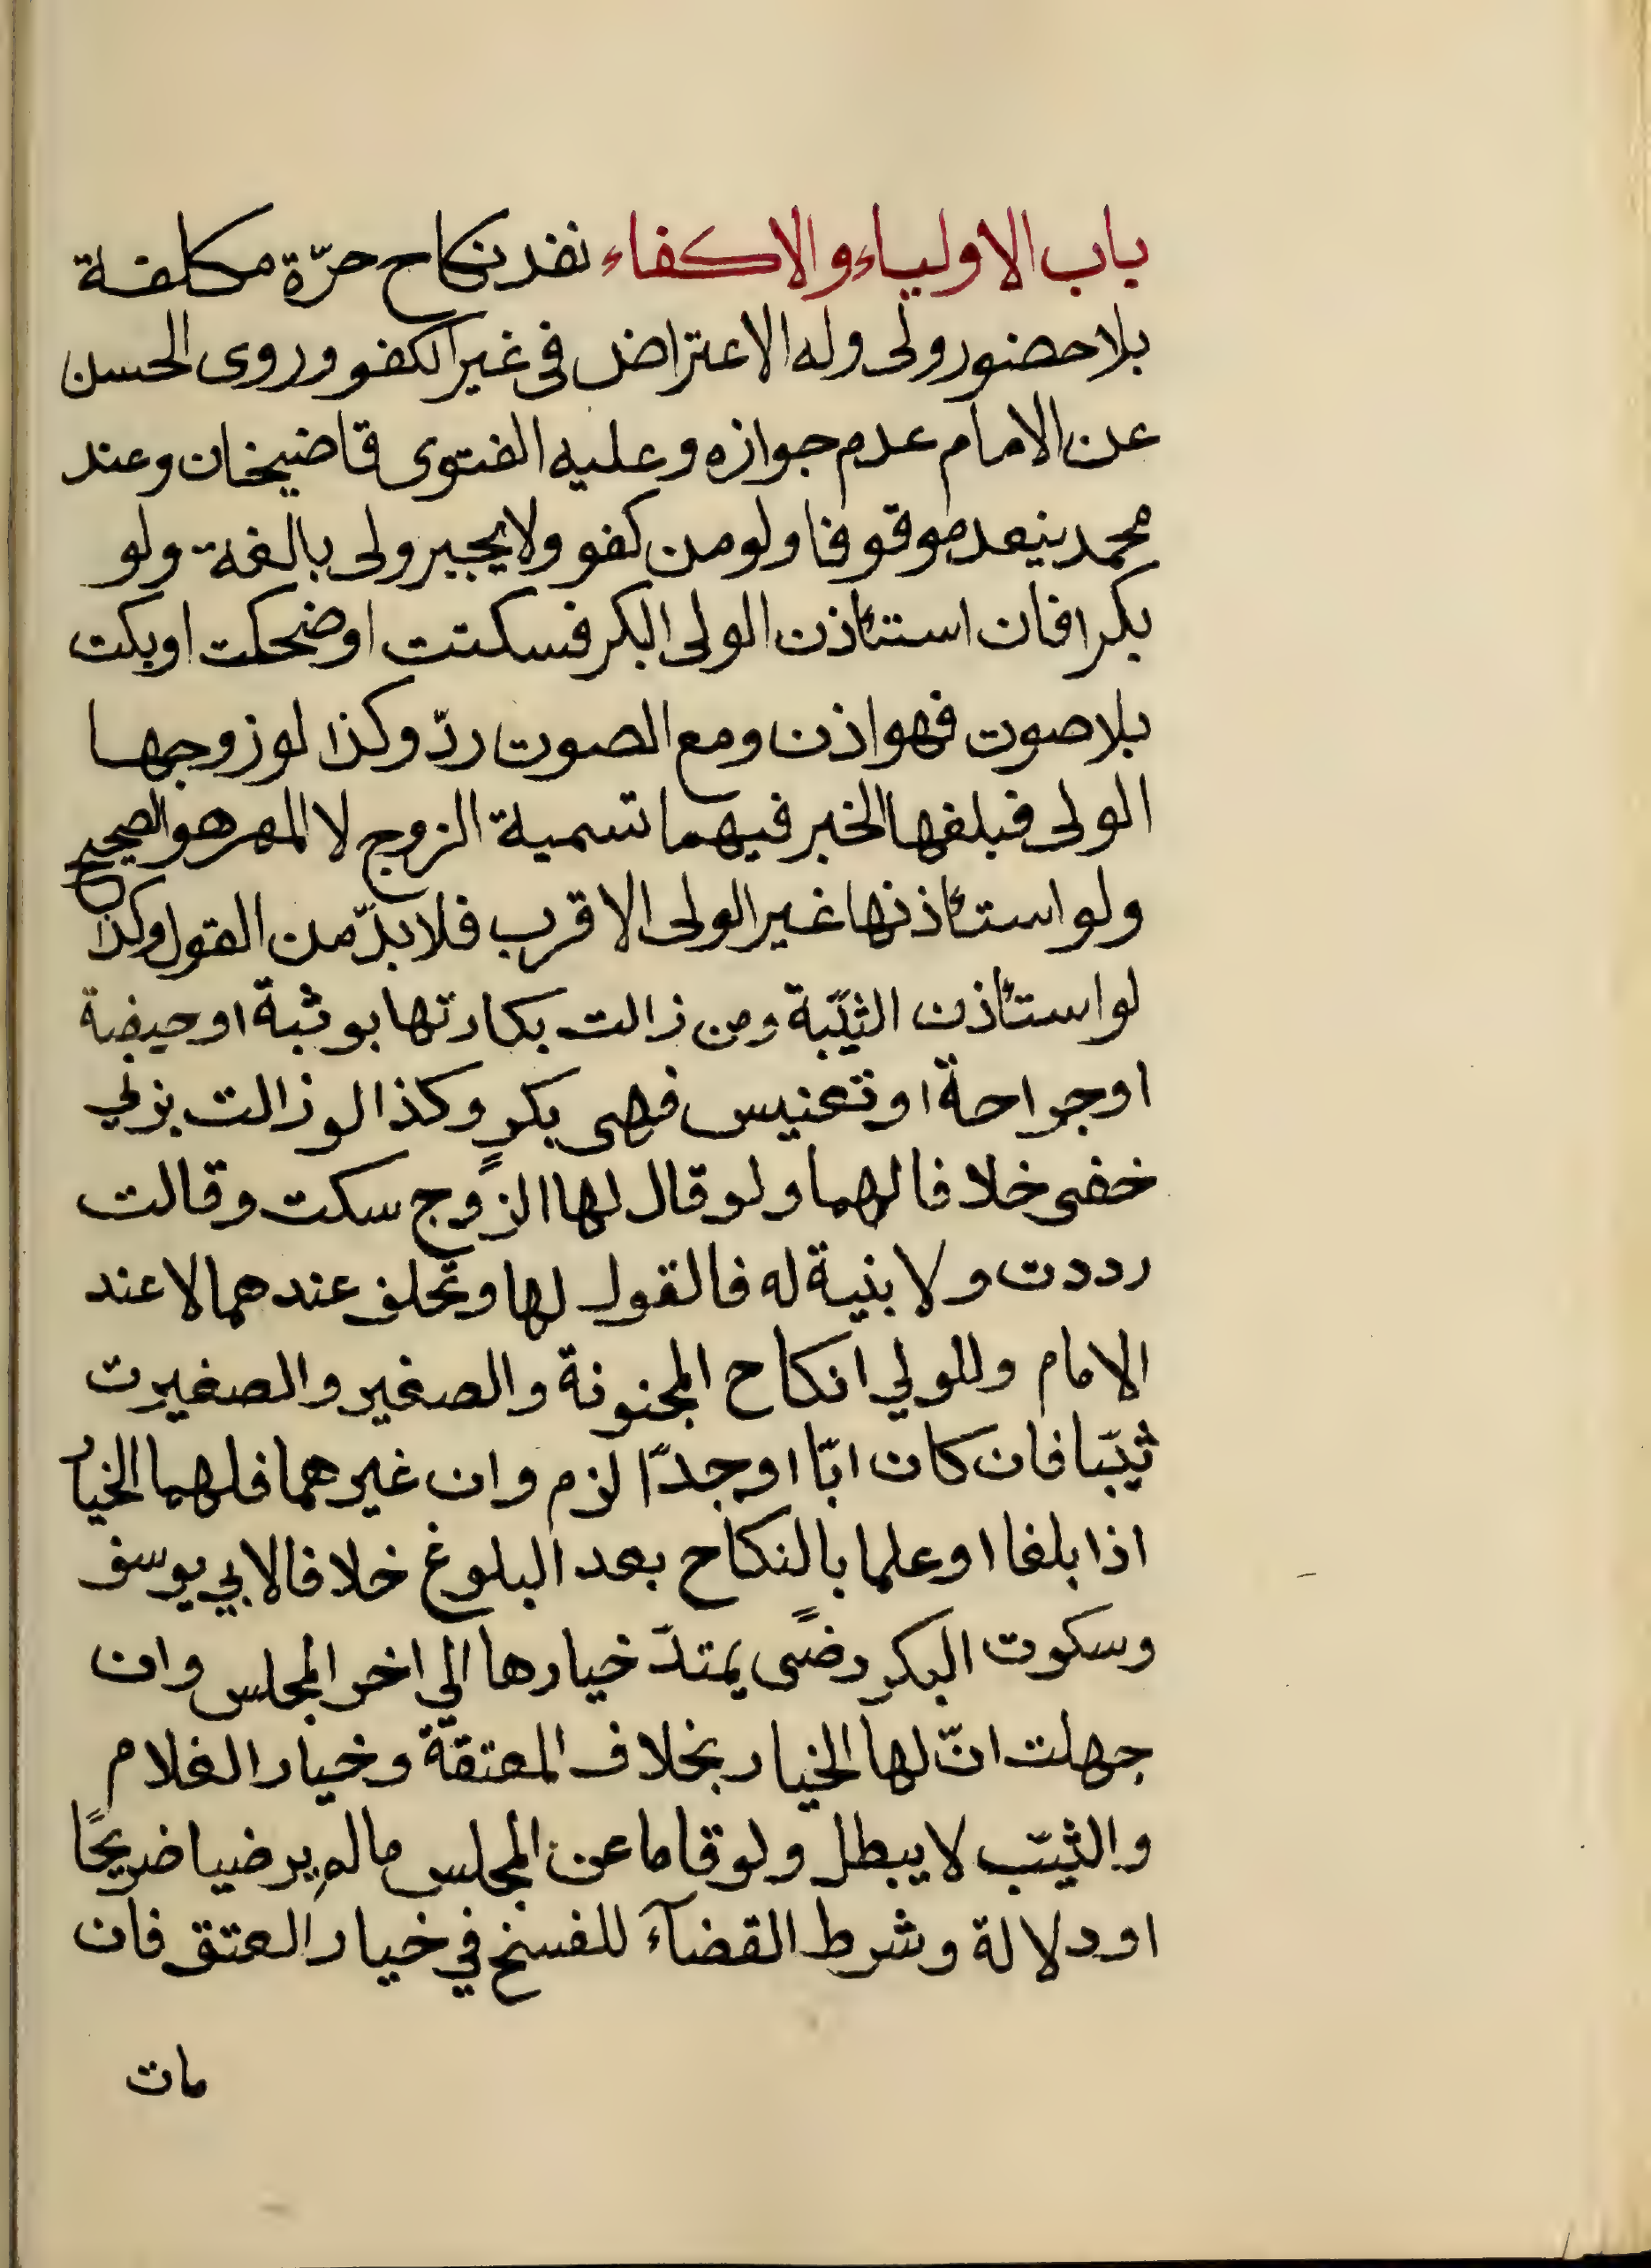 باب الاولياء والاكفاء نفد نكاح حرّة مكلفة
بلا حضور ولى وله الاعتراض فى غير الكفو وروى الحسن
عن الامام عدم جوازه وعليه الفتوى قاضيخان وعند
محمد ينعد موقوفا ولو من كفو ولا يجبر ولى بالغة ولو
بكرا فان استئاذن الولى البكر فسكتت او ضحكت او بكت
بلا صوت فهو اذن ومع الصوت ردّ وكذا لو زوجها
الولى فبلغها الخبر فيهما تسمية الزوج لا المهر هو الصحيح
ولو استئاذنها غير الولى الاقرب فلا بدّ من القول وكذا
لو استئاذن الثيّبة ومن زالت بكارتها بوثبة او حيضة
او جراحة او تعنيس فهى بكرٍ وكذا لو زالت بزني
خفى خلافا لهما ولو قال لها الزوج سكت وقالت
رددت ولا بنية له فالقول لها وتحلف عندهما لا عند
الامام وللولي انكاح المجنونة والصغير والصغيرت
ثيّبا فان كان ابّا او جدّا لزم وان غيرهما فلهما الخيار
اذا بلغا او علما بالنكاح بعد البلوغ خلافا لابي يوسف
وسكوت البكر رضًى يمتدّ خيارها الي اخر المجلس وان
جهلت انّ لها الخيار بخلاف المعتقة وخيار الغلام
والثيّب لا يبطل ولو قاما عن المجلس مالم يرضيا ضريحًا
او دلالة وشرط القضآء للفسخ في خيار العتق فان
مات